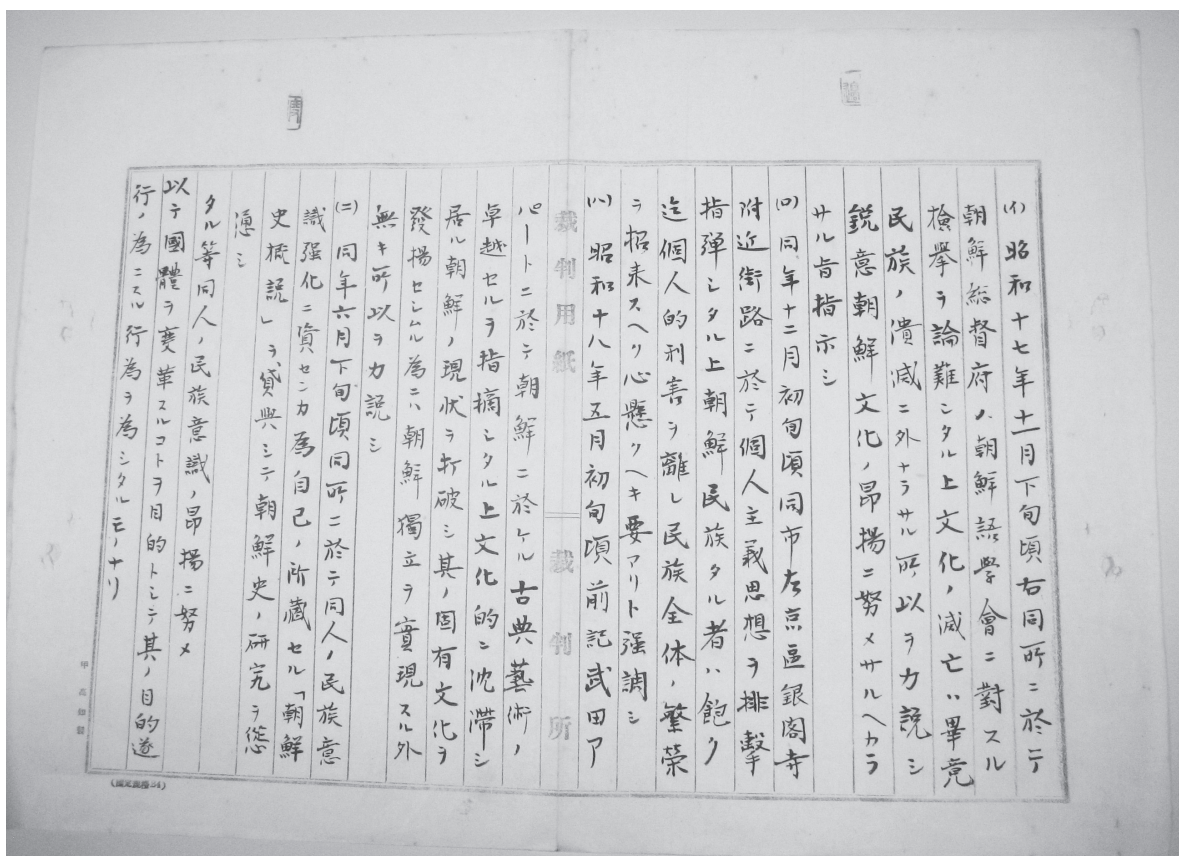 (イ) 昭和十七年十一月下旬頃右同所ニ於テ
朝鮮総督府ノ朝鮮語學會ニ對スル
檢擧ヲ論難シタル上文化ノ滅亡ハ畢竟
民族ノ潰滅ニ外ナラサル所以ヲ力説シ
鋭意朝鮮文化ノ昂揚ニ努メサルヘカラ
サル旨指示シ
(ロ) 同年十二月初旬頃同市左京區銀閣寺
附近街路ニ於テ個人主義思想ヲ排擊
指弾シタル上朝鮮民族タル者ハ飽ク
迄個人的利害ヲ離レ民族全体ノ繁榮
ヲ招来スヘク心懸クヘキ要アリト强調シ
(ハ) 昭和十八年五月初旬頃前記武田ア
裁判用紙
裁判所
パートニ於テ朝鮮ニ於ケル古典藝術ノ
卓越セルヲ指摘シタル上文化的ニ沈滞シ
居ル朝鮮ノ現状ヲ打破シ其ノ固有文化ヲ
發揚セシムル為ニハ朝鮮獨立ヲ實現スル外
無キ所以ヲ力説シ
(ニ) 同年六月下旬頃同所ニ於テ同人ノ民族意
識强化ニ資センカ為自己ノ所藏セル「朝鮮
史概説」ヲ貸與シテ朝鮮史ノ研究ヲ慫
慂シ
タル等同人ノ民族意識ノ昂揚ニ努メ
以テ國體ヲ變革スルコトヲ目的トシテ其ノ目的遂
行ノ為ニスル行為ヲ為シタルモノナリ